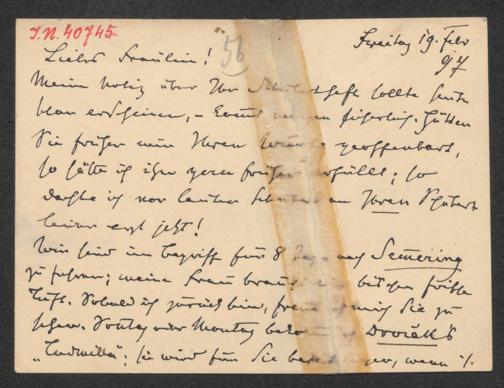 I.N. 40745
56
Freitag 19. Feb
97
Liebes Fräulein!
Meine Notiz über Ihr Schubertheft sollte heute
erscheinen, – kommt morgen sicherlich. Hätten
Sie früher mir Ihren Wunsch geoffenbart,
so hätte ich ihn gern früher erfüllt; so
dachte ich vor lauter Schubert an Ihren Schubert
leider erst jetzt!
Wir sind im Begriff für 8 Tage nach Semering
zu fahren; meine Frau braucht ein bischen frische
Luft. Sobald ich zurück bin, freue ich mich Sie zu
sehen. Sontag oder Montag bekomme ich Dvořák's
„Ludmilla"; sie wird für Sie bereit liegen, wenn ·/.